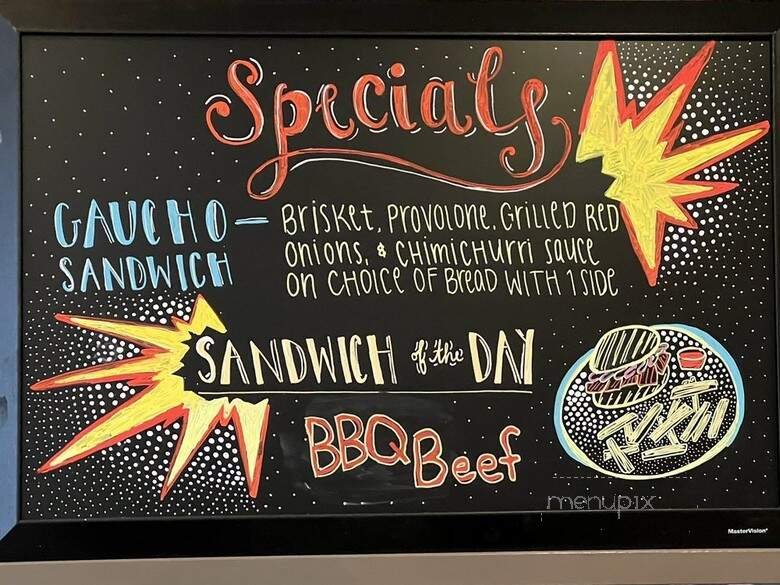 Specials
GAUCHO —
SANDWICH
Brisket, Provolone, Grilled Red
Onions, & Chimichurri Sauce
on Choice of Bread with 1 Side
SANDWICH of the DAY
BBQ Beef
menupix
MasterVision®